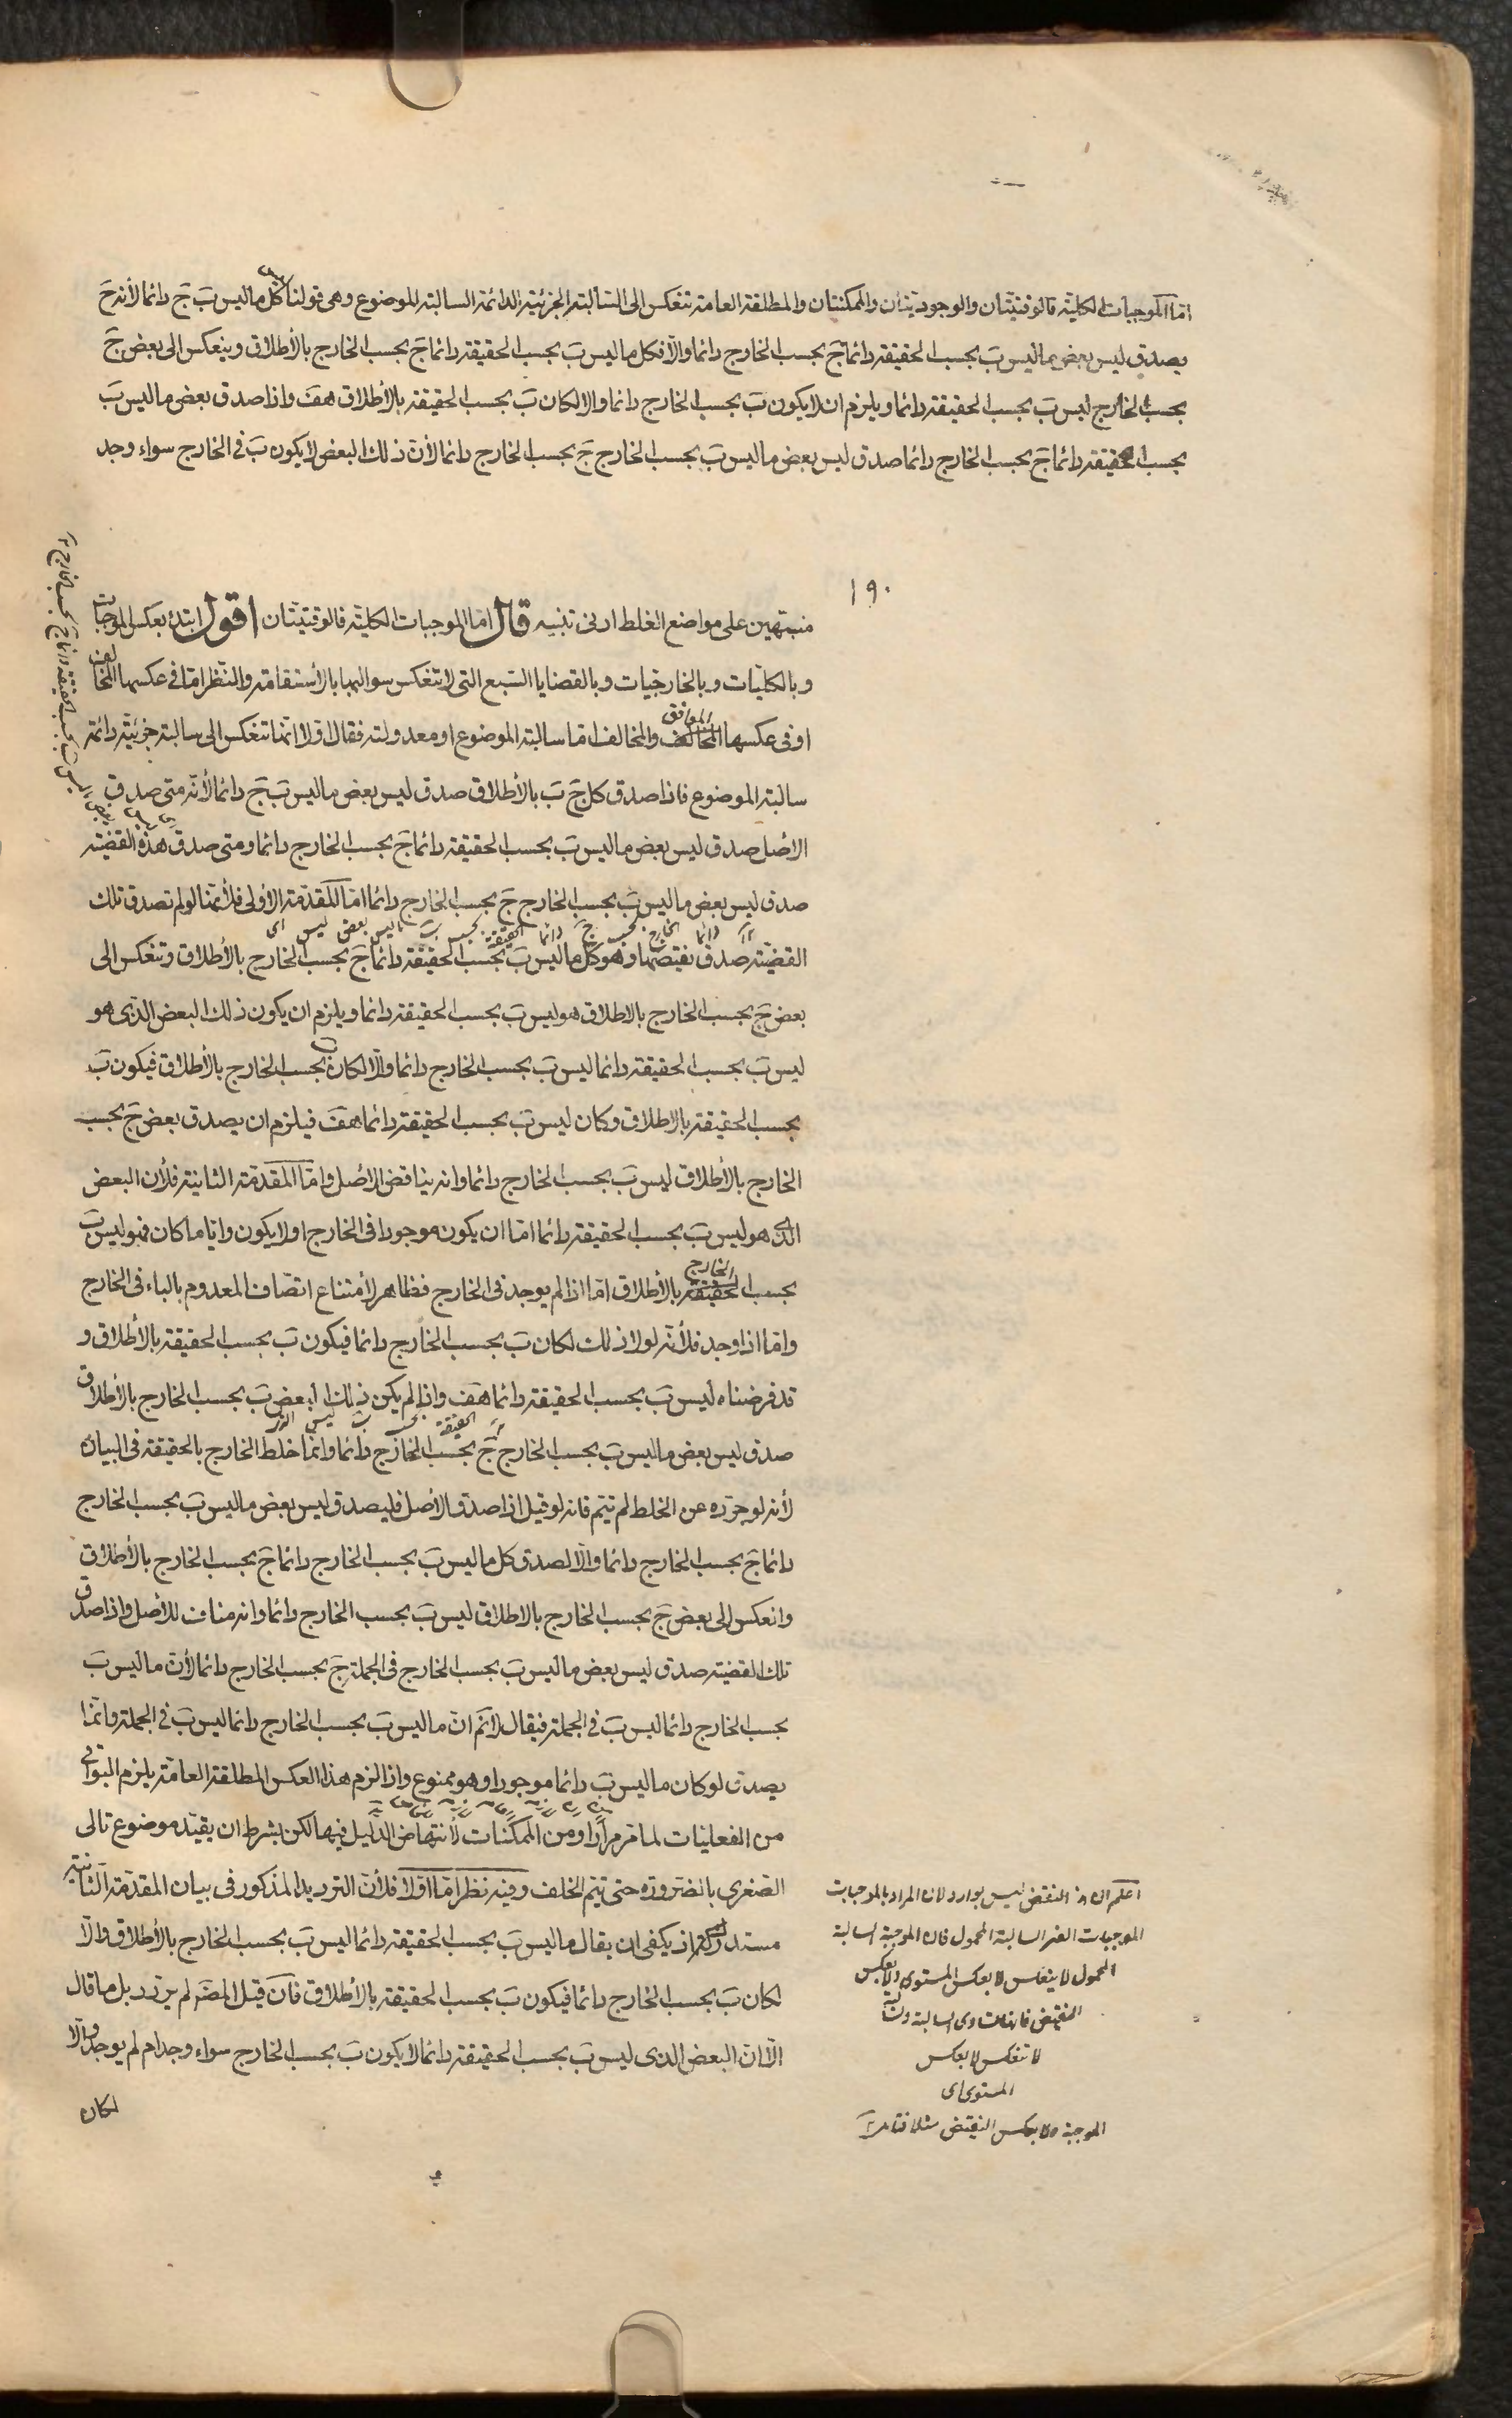 امّا الموجبات الكلية فالوقتيتان والوجوديتان والممكنتان والمطلقة العامة تنعكس الى السالبة الجزئية الدائمة السالبة الموضوع وهى قولنا كل ما ليس بَ جَ دائما لأنه حَ
يصدق ليس بعض ما ليس بَ بحسب الحقيقة دائما جَ بحسب الخارج دائما والّا فكل ما ليس بَ بحسب الحقيقة دائما جَ بحسب الخارج بالأطلاق وينعكس الى بعض جَ
بحسب الخارج ليس بَ بحسب الحقيقة دائما ويلزم ان لا يكون بَ بحسب الخارج دائما والا لكان بَ بحسب الحقيقة بالأطلاق هفَ واذا صدق بعض ما ليس بَ
بحسب الحقيقة دائما جَ بحسب الخارج دائما صدق ليس بعض ما ليس بَ بحسب الخارج جَ بحسب الخارج دائما لأن ذلك البعض لا يكون بَ فى الخارج سواء وجد
١٩٠
منبهين على مواضع الغلط ادنى تنبيه قال امّا الموجبات الكلية فالوقتيتان اقول ابتدء بعكس الموجبات
وبالكليات وبالخارجيات وبالقضايا السبع التى لا تنعكس سوالبها بالأستقامة والنظر امّا فى عكسها المخالف
او فى عكسها الموافق والمخالف امّا سالبة الموضوع او معدولته فقال اولا انّها تنعكس الى سالبة جزئية دائمة
سالبة الموضوع فاذا صدق كل جَ بَ بالأطلاق صدق ليس بعض ما ليس بَ جَ دائما لأنّه متى صدق
الاصل صدق ليس بعض ما ليس بَ بحسب الحقيقة دائما جَ بحسب الخارج دائما ومتى صدق هذه القضية
صدق ليس بعض ما ليس بَ بحسب الخارج جَ بحسب الخارج دائما امّا المقدّمة الأولى فلأنّها لو لم تصدق تلك
اى ليس بعض ما ليس بَ بحسب الحقيقة دائما جَ بحسب الخارج دائما
القضيّة صدق نقيضها وهو كل ما ليس بَ بحسب الحقيقة دائما جَ بحسب الخارج بالأطلاق وتنعكس الى
بعض جَ بحسب الخارج بالاطلاق هو ليس بَ بحسب الحقيقة دائما ويلزم ان يكون ذلك البعض الذى هو
ليس بَ بحسب الحقيقة دائما ليس بَ بحسب الخارج دائما والّا لكان بَ بحسب الخارج بالأطلاق فيكون بَ
بحسب الحقيقة بالاطلاق وكان ليس بَ بحسب الحقيقة دائما هفَ فيلزم ان يصدق بعض جَ بحسب
الخارج بالأطلاق ليس بَ بحسب الخارج دائما وانه يناقض الأصل وامّا المقدّمة الثانية فلأن البعض
الذى هو ليس بَ بحسب الحقيقة دائما امّا ان يكون موجودا فى الخارج او لا يكون وايّا ما كان فهو ليس بَ
بحسب الخارج بالأطلاق امّا اذا لم يوجد فى الخارج فظاهر لأمتناع اتصاف المعدوم بالباء فى الخارج
وامّا اذا وجد فلأنّه لولا ذلك لكان بَ بحسب الخارج دائما فيكون بَ بحسب الحقيقة بالأطلاق و
قد فرضناه ليس بَ بحسب الحقيقة دائما هفَ واذا لم يكن ذلك البعض بَ بحسب الخارج بالأطلاق
صدق ليس بعض ما ليس بَ بحسب الخارج جَ بحسب الخارج دائما وانّما خلط الخارج بالحقيقة فى البيان
لأنه لو جرّده عن الخلط لم يتم فانه لو قيل اذا صدق الأصل فليصدق ليس بعض ما ليس بَ بحسب الخارج
دائما جَ بحسب الخارج دائما والّا لصدق كل ما ليس بَ بحسب الخارج دائما جَ بحسب الخارج بالأطلاق
وانعكس الى بعض جَ بحسب الخارج بالاطلاق ليس بَ بحسب الخارج دائما وانه مناف للأصل واذا صدق
تلك القضية صدق ليس بعض ما ليس بَ بحسب الخارج فى الجملة جَ بحسب الخارج دائما لأن ما ليس بَ
بحسب الخارج دائما ليس بَ فى الجملة فيقال لا نم ان ما ليس بَ بحسب الخارج دائما ليس بَ فى الجملة وانما
يصدق لو كان ما ليس بَ دائما موجودا وهو ممنوع واذا لزم هذا العكس المطلقة العامّة يلزم البواقى
من الفعليات لما مر مرارا ومن الممكنات لأنتهاض الدليل فيها لكن بشرط ان يقيّد موضوع تالى
الصغرى بالضرورة حتى يتم الخلف وفيه نظر امّا اولا فلأن الترديد المذكور فى بيان المقدّمة الثانية
مستدرك اذ يكفى ان يقال ما ليس بَ بحسب الحقيقة دائما ليس بَ بحسب الخارج بالأطلاق والّا
لكان بَ بحسب الخارج دائما فيكون بَ بحسب الحقيقة بالأطلاق فان قيل المصَ لم يردد بل ما قال
الّا ان البعض الذى ليس بَ بحسب الحقيقة دائما لا يكون بَ بحسب الخارج سواء وجد ام لم يوجد والّا
لكان
اعلم ان النقض ليس بوارد لان المراد بالموجبات
الموجبات الغير السالبة المحمول فان الموجبة السالبة
المحمول لا ينعكس لا بعكس المستوى ولا بعكس
النقيض
لا تنعكس لا بعكس
المستوى اى
الموجبة ولا بعكس النقيض